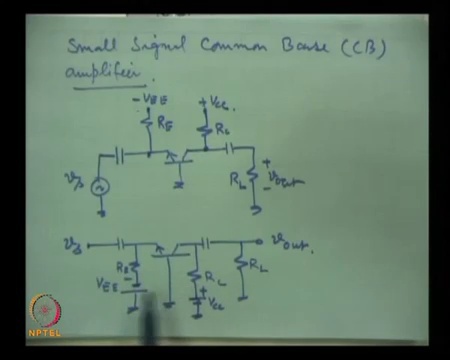 Small Signal Common Base (CB)
amplifier.
-VEE +VCC
RE RC
vs RL + vout -
vs vout.
RE - RC RL
VEE + VCC
NPTEL